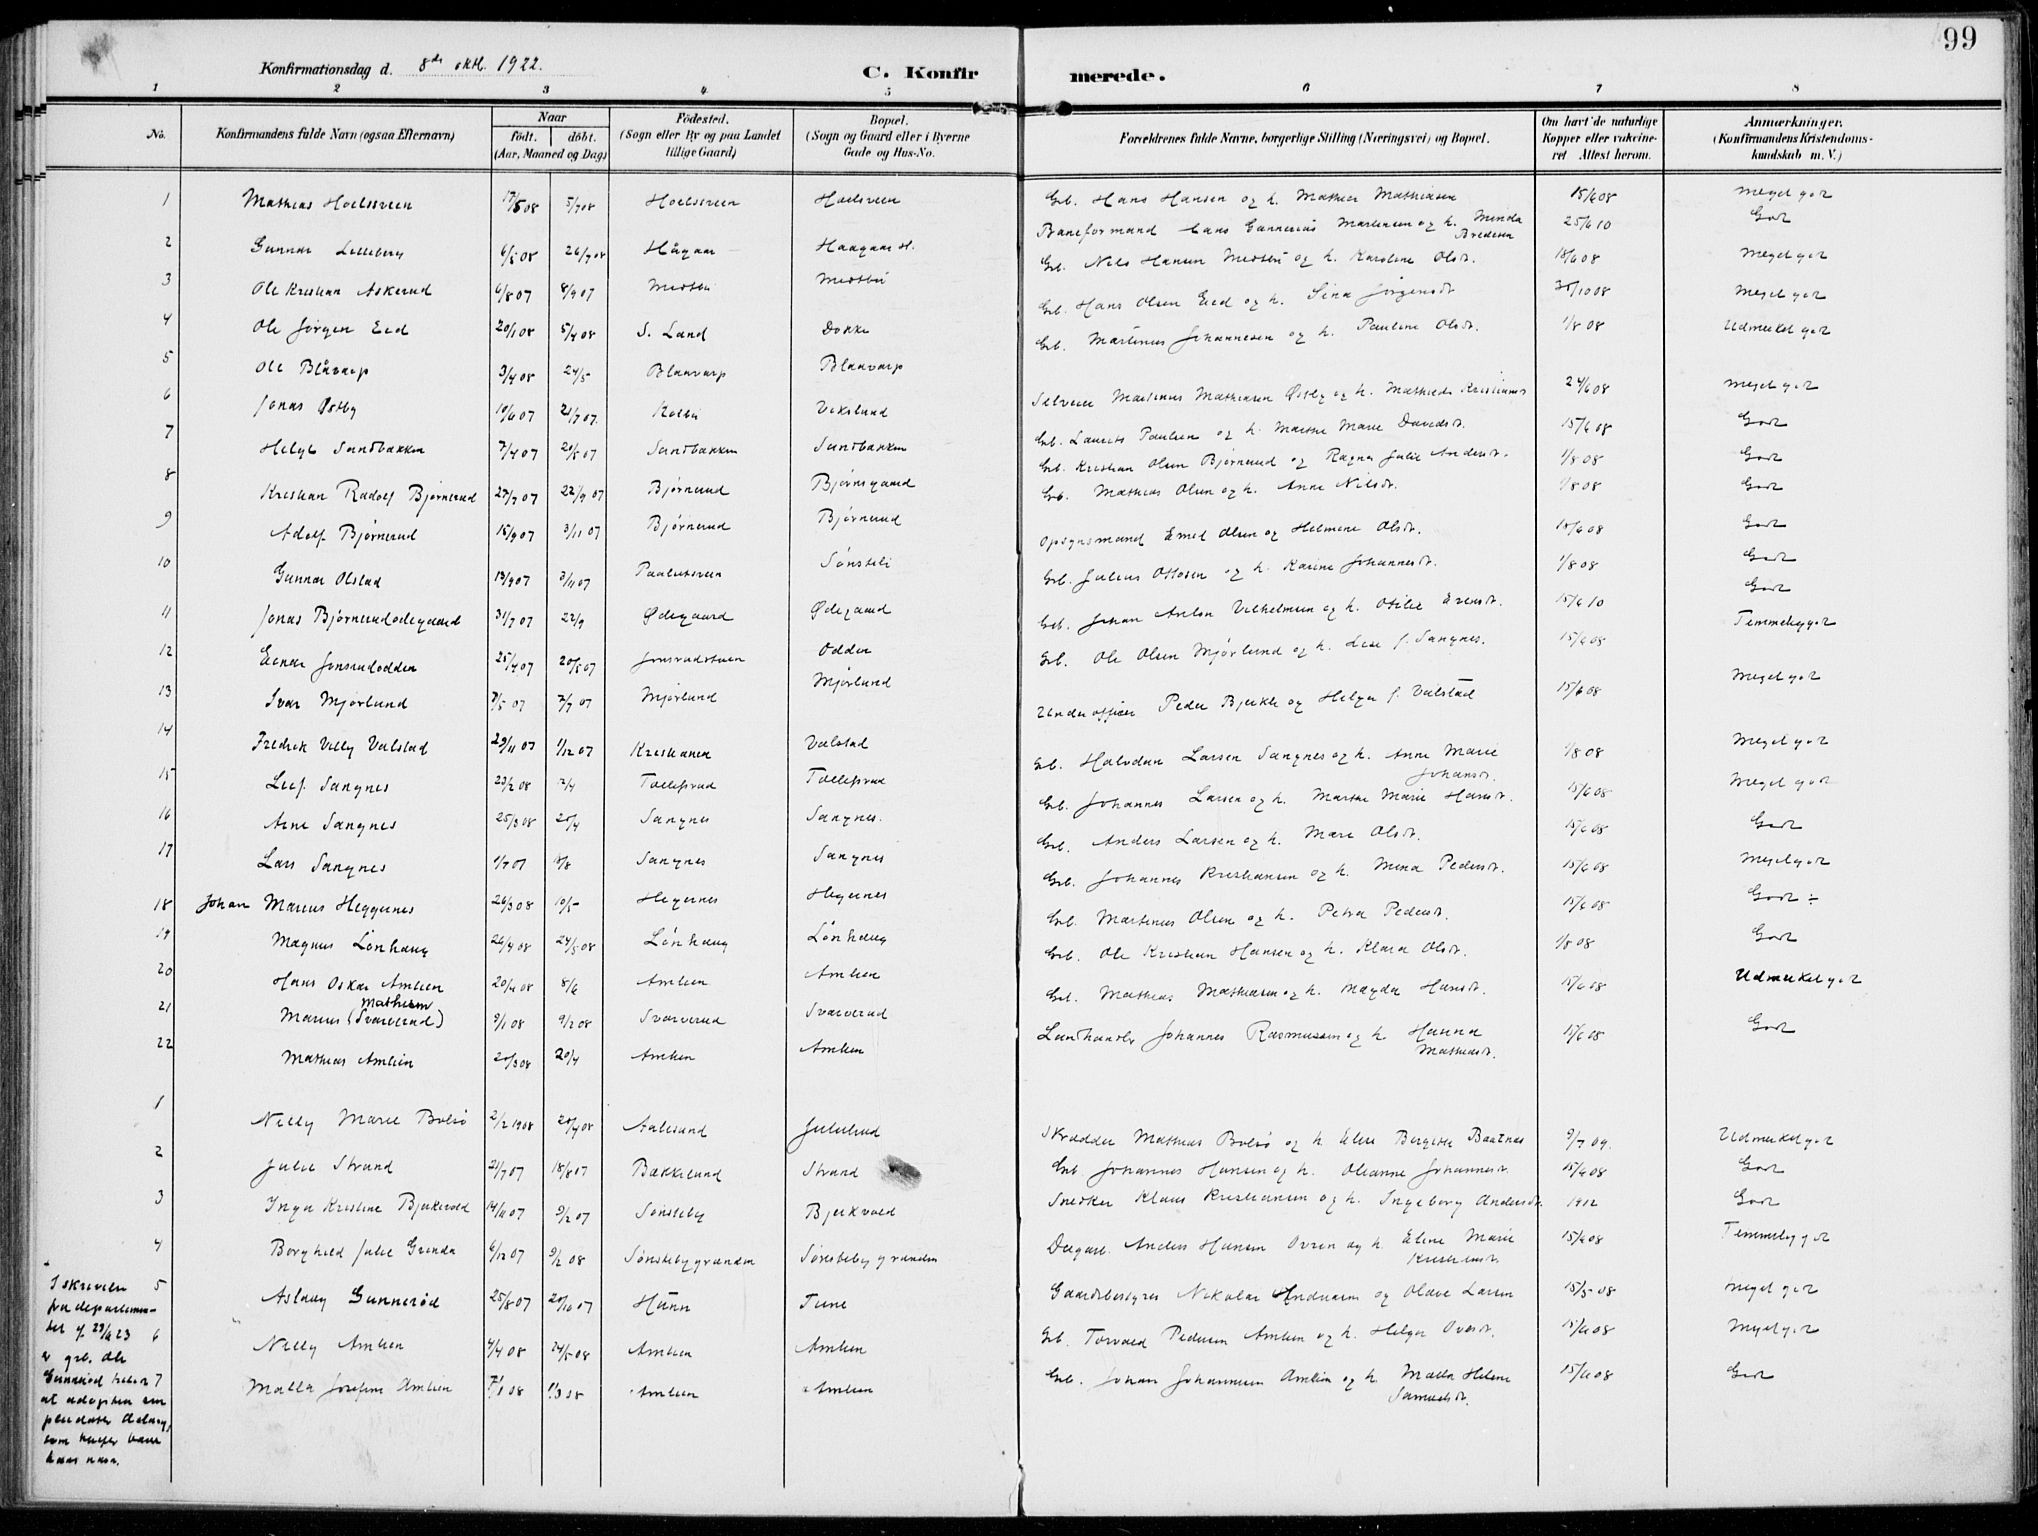 99
Konfirmationsdag d. 8de okt. 1922.
C. Konfirmerede.
1 2 3 4 5 6 7 8
No.
Konfirmandens fulde Navn (ogsaa Efternavn)
Naar
födt. döbt.
(Aar, Maaned og Dag)
Födested.
(Sogn eller By og paa Landet
tillige Gaard)
Bopæl.
(Sogn og Gaard eller i Byerne
Gade og Hus-No.
Forældrenes fulde Navne, borgerlige Stilling (Næringsvei) og Bopæl.
Om havt de naturlige
Kopper eller vakcine-
ret Attest herom.
Anmærkninger.
(Konfirmandens Kristendoms-
kundskab m. V.)
1 Mathias Hoelsveen 17/5 08 5/7 08 Hoelsveen Hoelsveen Grb. Hans Hansen og h. Mathea Mathiasen 15/6 08 Meget godt
2 Gunnar Lilleberg 6/5 08 26/7 08 Hågaar Haagaar Baneformand Hans Gunnerius Martinsen og h. Minda Bredesen 25/6 10 Godt
3 Ole Kristian Askerud 6/8 07 8/9 07 Medtbø Medtbø Grb. Nils Hansen Medtbø og h. Karoline Olsdt. 18/6 08 Meget godt
4 Ole Jørgen Eid 20/1 08 5/4 08 S. Land Dokka Grb. Hans Olsen Eid og h. Sina Jørgensdt. 30/10 08 Meget godt
5 Ole Blåvarp 3/4 08 24/5 Blaavarp Blaavarp Grb. Martinus Johannesen og h. Pauline Olsdt. 1/8 08 Udmerket godt
6 Jonas Østby 10/6 07 21/7 07. Kolbu Vekslund Selveier Martinus Mathiasen Østby og h. Mathilde Kristiansdt 24/6 08 Meget godt
7 Helge Sandbakken 7/4 07 20/5 07 Sandbakken Sandbakken Grb. Laurits Paulsen og h. Marthe Marie Davidsdt. 15/6 08 Godt
8 Kristian Radolf Bjørnerud 27/7 07 22/9 07 Bjørnerud Bjørnsgaard Grb. Kristian Olsen Bjørnerud og Ragna Julie Andersdt. 1/8 08 Godt
9 Adolf Bjørnerud 15/9 07 3/11 07 Bjørnerud Bjørnerud Grb. Mathias Olsen og h. Anne Nilsdt. 1/8 08 Godt
10 Gunnar Olstad 13/9 07 3/11 07 Paalietsveen Sønsteli Opsynsmand Emil Olsen og Helmine Olsdt. 15/6 08 Godt
11 Jonas Bjørnerudødegaard 31/7 07 22/9 Ødegaard Ødegaard Grb. Julius Ottosen og h. Karine Johannesdt. 1/8 08 Godt
12 Einar Jonsrudodden 25/4 07 20/5 07 Jonsrudstuen Odden Grb. Johan Anton Vilhelmsen og h. Otilie Evensdt. 15/6 10 Godt
13 Ivar Mjørlund 7/5 07 7/7 07 Mjørlund Mjørlund Grb. Ole Olsen Mjørlund og h. Lise f. Sangnes. 15/6 08 Temmelig godt
14 Fredrik Villy Valstad 29/11 07 1/12 07 Kristiania Valstad Underofficer Peder Bjerke og Helga f. Valstad 15/6 08 Meget godt
15 Leif Sangnes 23/2 08 12/4 Tollefsrud Tollefsrud Grb. Halvdan Larsen Sangnes og h. Anne Marie Johansdt. 1/8 08 Meget godt
16 Arne Sangnes 25/3 08 20/4 Sangnes Sangnes. Grb. Johannes Larsen og h. Marthe Marie Hansdt. 15/6 08 Meget godt
17 Lars Sangnes 1/7 07 18/8 Sangnes Sangnes Grb. Anders Larsen og h. Mari Olsdt. 15/6 08 Godt
18 Johan Marius Heggernes 26/3 08 10/5 Hegernes Hegernes Grb. Johannes Kristiansen og h. Mina Pedersdt. 15/6 08 Meget godt
19 Magnus Lønhaug 26/4 08 24/5 08 Lønhaug Lønhaug Grb. Martinus Olsen og h. Petra Pedersdt. 15/6 08 Godt ÷
20 Hans Oskar Amlien 20/4 08 8/6 Amlien Amlien Grb. Ole Kristian Hansen og h. Klara Olsdt. 1/8 08 Godt
21 Marius Mathiasen (Svarverud) 9/1 08 9/2 08 Svarverud Svarverud Grb. Mathias Mathiasen og h. Magda Hansdt. 15/6 08 Udmerket godt
22 Mathias Amlien 20/3 08 20/4 Amlien Amlien Landhandler Johannes Rasmussen og h. Hanna Mathiasdt. 15/6 08 Godt
1 Nelly Marie Bolsø 2/2 1908 20/4 08 Aalesund Julielund Skrædder Mathias Bolsø og h. Eline Bergitte Baatnes 9/7 09. Udmerket godt
2 Julie Strand 21/7 07 18/8 07 Bakkelund Strand Grb. Johannes Hansen og h. Oleanne Johannesdt. 15/6 08 Godt
3 Inga Kristine Bjerkevold 14/11 07 9/2 07 Sønsteby Bjerkvold Snedker Klaus Kristiansen og h. Ingeborg Andersdt. 1912 Godt
4 Borghild Julie Grinda 6/12 07 9/2 08 Sønstebygrænden Sønstebygrænden Dagarb. Anders Hansen Ovren og h. Eline Marie Kristiansdt. 15/6 08 Temmelig godt
5 Aslaug Gunnerød 25/8 07 20/10 07 Hunn Tune Gaardsbestyrer Nikolai Andersen og Olave Larsen 15/5 08 Meget godt
6 Nelly Amlien 4/4 08 24/5 08 Amlien Amlien Grb. Torvald Pedersen Amlien og h. Helga Oversdt. 15/6 08 Meget godt
7 Malla Josefine Amlien 7/1 08 1/3 08 Amlien Amlien Grb. Johan Johannesen Amlien og h. Malla Helene Samuelsdt. 15/6 08 Godt
I skrivelse
fra departemen-
tet af 23/6 23
er grb. Ole
Gunnerød
at adoptere sin
pleiedatter Aslaug,
som bærer
hans navn.